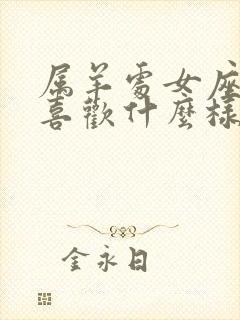 属羊處女座
喜歡什麼樣
金永日